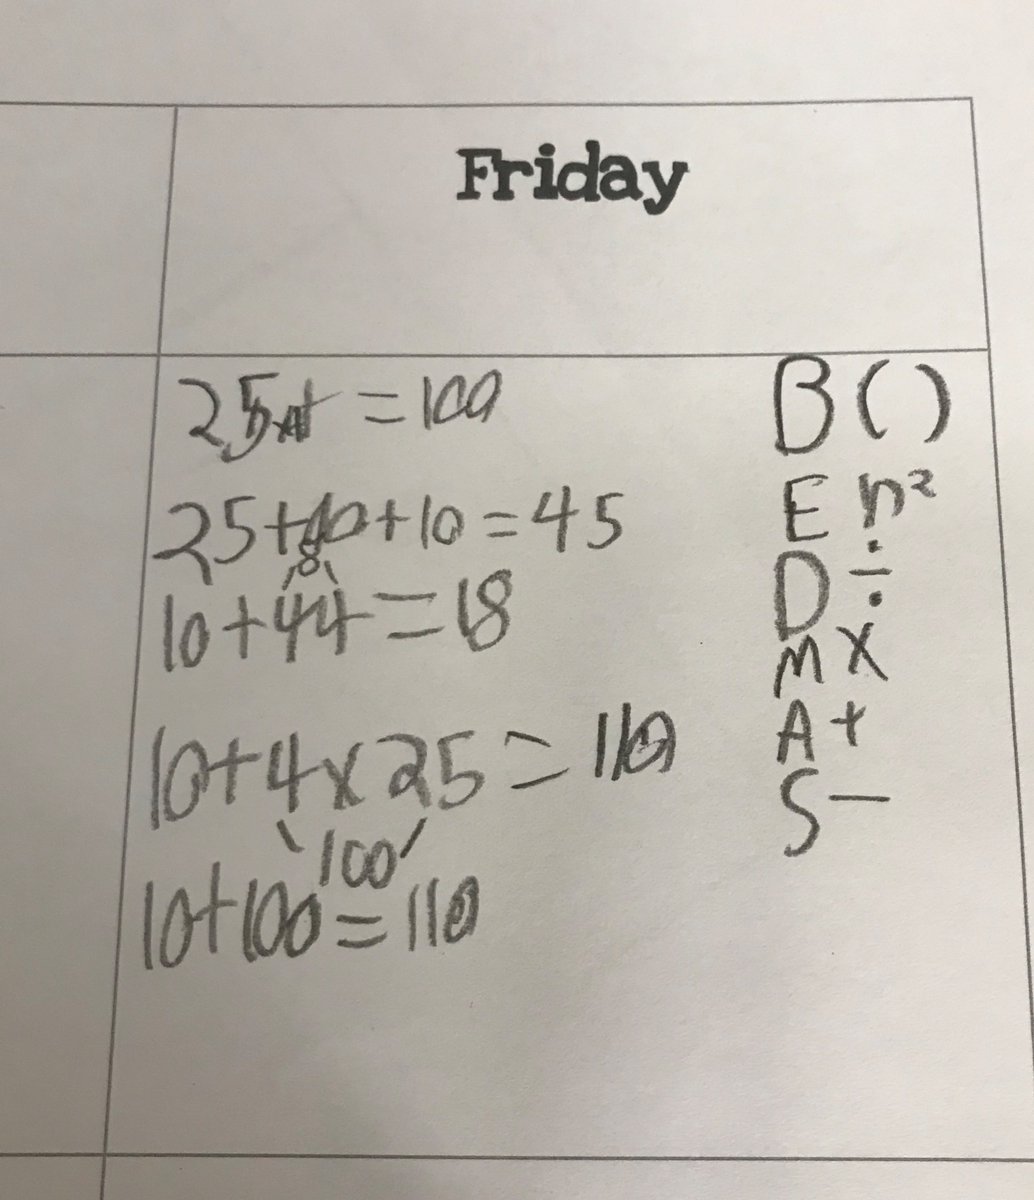 Friday
25x4=100
25+10+10=45
8
10+44=18
10+4x25=110
100
10+100=110
B ()
E n²
D ÷
M X
A +
S -